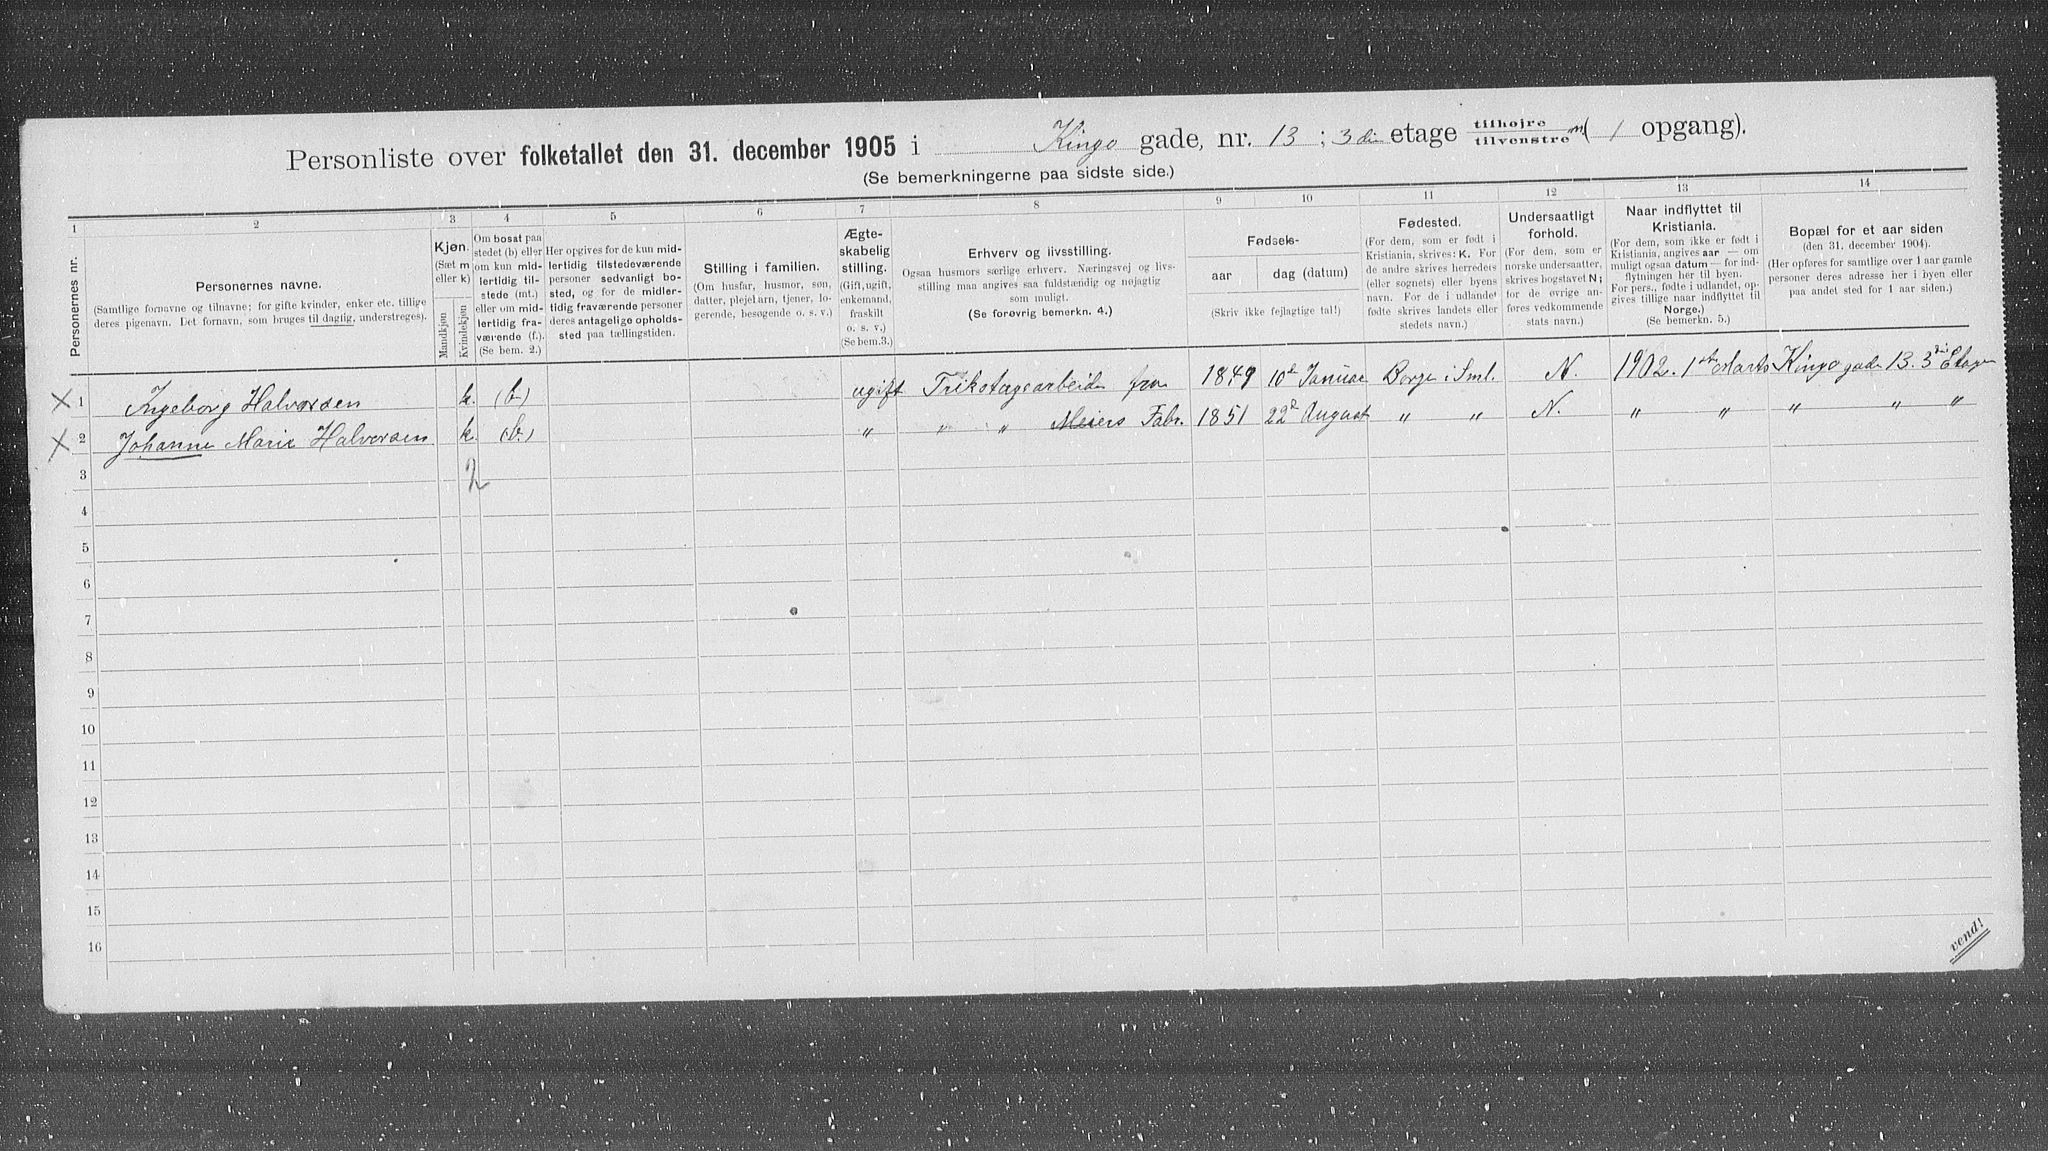 Personliste over folketallet den 31. december 1905 i Kingo gade, nr. 13 ; 3die etage tilhøjre tilvenstre ( 1 opgang).
(Se bemerkningerne paa sidste side.)
1 2 3 4 5 6 7 8 9 10 11 12 13 14
Personernes nr.
Personernes navne.
(Samtlige fornavne og tilnavne; for gifte kvinder, enker etc. tillige
deres pigenavn. Det fornavn, som bruges til daglig, understreges).
Kjøn.
(Sæt m
eller k)
Mandkjøn
Kvindekjøn
Om bosat paa
stedet (b) eller
om kun mid-
lertidig til-
stede (mt.)
eller om mid-
lertidig fra-
værende (f.).
(Se bem. 2.)
Her opgives for de kun mid-
lertidig tilstedeværende
personer sedvanligt bo-
sted, og for de midler-
tidig fraværende personer
deres antagelige opholds-
sted paa tællingstiden.
Stilling i familien.
(Om husfar, husmor, søn,
datter, plejebarn, tjener, lo-
gerende, besøgende o. s. v.)
Ægte-
skabelig
stilling.
(Gift, ugift,
enkemand,
fraskilt
o. s. v.)
(Se bem.3.)
Erhverv og livsstilling.
Ogsaa husmors særlige erhverv. Næringsvej og livs-
stilling maa angives saa fuldstændig og nøjagtig
som muligt.
(Se forøvrig bemerkn. 4.)
Fødsels-
aar dag (datum)
(Skriv ikke fejlagtige tal!)
Fødested.
(For dem, som er født i
Kristiania, skrives: K. For
de andre skrives herredets
(eller sognets) eller byens
navn. For de i udlandet
fødte skrives landets eller
stedets navn.)
Undersaatligt
forhold.
(For dem, som er
norske undersaatter,
skrives bogstavet N;
for de øvrige an-
føres vedkommende
stats navn.)
Naar indflyttet til
Kristiania.
(For dem, som ikke er født i
Kristiania, angives aar — om
muligt ogsaa datum — for ind-
flytningen her til byen.
For pers., fødte i udlandet, op-
gives tillige naar indflyttet til
Norge.)
(Se bemerkn. 5.)
Bopæl for et aar siden
(den 31. december 1904).
(Her opføres for samtlige over 1 aar gamle
personer deres adresse her i byen eller
paa andet sted for 1 aar siden.)
X 1 Ingeborg Halvorsen k. (b) ugift Trikotagearbeide fra 1849 10de Januar Borge i Sml. N. 1902. 1ste Marts Kingo gade 13. 3die Etage
X 2 Johanne Marie Halvorsen k. (b) " " " Meiers Fabr. 1851 22de August " " N. " " " " "
3 2
4
5
6
7
8
9
10
11
12
13
14
15
16
vend!